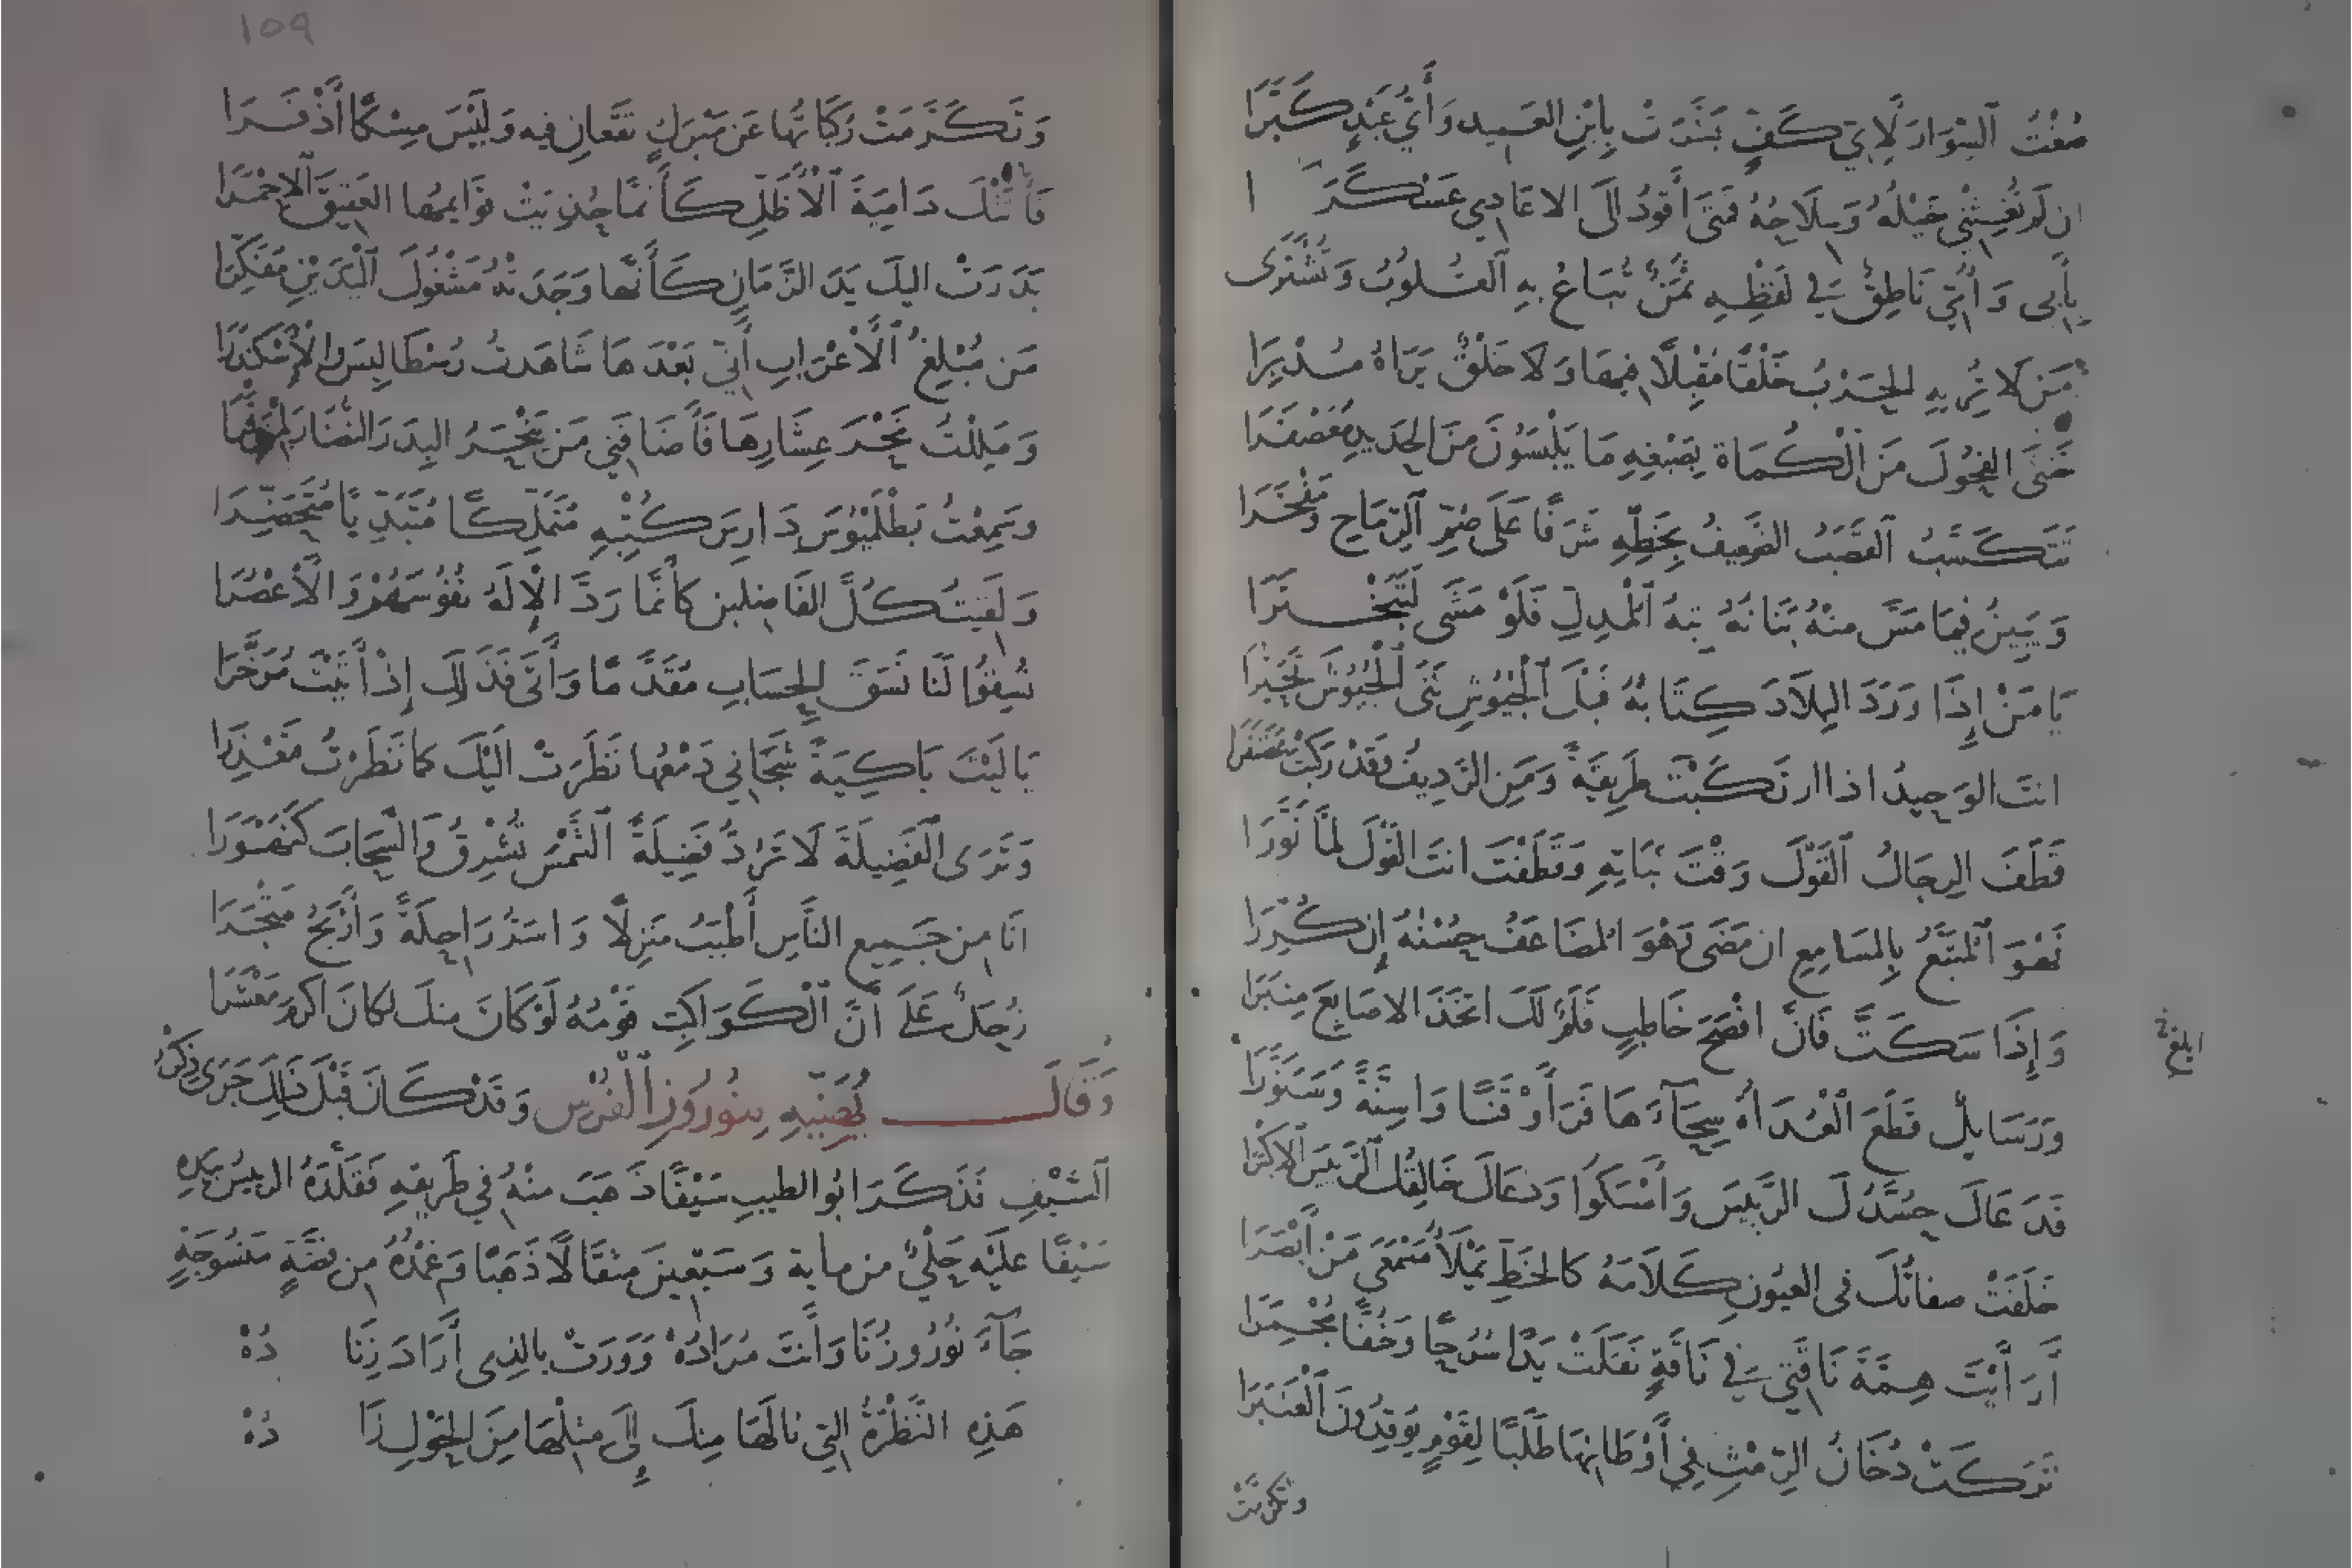 صُغْتُ السِّوَارَ لِأَيِّ كَفٍّ بَشَّرَتْ بِابْنِ العَمِيدِ وَأَيِّ عَبْدٍ كَبَّرَا
ان لَمْ تُغِثْنِي خَيْلُهُ وَسِلَاحُهُ فَمَتَى أَقُودُ الَى الاعَادِي عَسْكَرَا
بِأَبِي وَأُمِّي نَاطِقٌ فِي لَفْظِهِ ثَمَنٌ تُبَاعُ بِهِ القُلُوبُ وَتُشْتَرَى
مَن لَا تُرِيهِ الحَرْبُ خَلْقًا مُقْبِلًا فِيهَا وَلَا خَلْقٌ يَرَاهُ مُدْبِرَا
خَنْثَى الفُحُولَ مَنَ الْكُمَاةِ بِصَبْغِهِ مَا يَلْبَسُونَ مِنَ الحَدِيدِ مُعَصْفَرَا
يَتَكَسَّبُ القَصَبُ الضَّعِيفُ بِخَطِّهِ شَرَفًا عَلَى صُمِّ الرِّمَاحِ وَمَفْخَرَا
وَيَبِينُ فِيمَا مَسَّ مِنْهُ بَنَانُهُ تِيهُ الْمُدِلِّ فَلَوْ مَشَى لَتَبَخْتَرَا
يَا مَنْ إِذَا وَرَدَ البِلَادَ كِتَابُهُ قَبْلَ الْجُيُوشِ ثَنَى الْجُيُوشَ تَحَيُّرَا
انتَ الوَحِيدُ اذا ارتَكَبْتَ طَرِيقَةً وَمَنِ الرَّدِيفُ وَقَدْ رَكِبْتَ غَضَنْفَرَا
قَطَفَ الرِجَالُ القَوْلَ وَقْتَ نَبَاتِهِ وَقَطَفْتَ انتَ القَوْلَ لمَّا نَوَّرَا
فَهْوَ الْمُتَبَّعُ بِالمَسَامِعِ ان مَضَى وَهْوَ المُضَاعَفُ حُسْنُهُ إِن كُرِّرَا
وَإِذَا سَكَتَّ فَانَّ افْصَحَ خَاطِبٍ قَلَمٌ لَكَ اتَّخَذَ الاصَابِعَ مِنبَرَا
وَرَسَايِلٌ قَطَعَ الْعُدَاةُ سِحَآءَهَا فَرَأَوْا قَنًا وَاسِنَّةً وَسَنَوَّرَا
فَدَعَاكَ حُسَّدُكَ الرَّئِيسَ وَأَمْسَكُوا وَدَعَاكَ خَالِقُكَ الرَّئِيسَ الأَكْبَرَا
خَلَفَتْ صفاتُكَ فى العُيُونِ كَلَامَهُ كَالخَطِّ يَمْلَأُ مَسْمَعَي مَنْ أَبْصَرَا
أَرَأَيْتَ هِمَّةَ نَاقَتِي فِي نَاقَةٍ نَقَلَتْ يَدًا سُرُحًا وَخُفًّا مُجْمَرَا
تَرَكَتْ دُخَانَ الرِّمْثِ فِي أَوْطَانِهَا طَلَبًا لِقَوْمٍ يُوقِدُونَ الْعَنْبَرَا
وتكرمت
ابلغ
109
وَتَكَرَّمَتْ رُكَبَاتُهَا عَن مَبْرَكٍ تَقَعَانِ فِيه وَلَيْسَ مِسْكًا أَذْفَرَا
فَأَتَتْكَ دَامِيَةَ الْأَظَلِّ كَأَنَّمَا حُذِيَتْ قَوَايِمُهَا العَقِيقَ الأَحْمَرَا
بَدَرَتْ اليكَ يَدَ الزَّمَانِ كَأَنَّهَا وَجَدَتْهُ مَشْغُولَ الْيَدَيْنِ مُفَكِّرَا
مَن مُبْلِغُ الْأَعْرَابِ أَنِّي بَعْدَهَا شَاهَدتُ رُسْطَالِيسَ وَالْإِسْكَنْدَرَا
وَمَلِلْتُ نَحْرَ عِشَارِهَا فَأَضَافَنِي مَن يَنْحَرُ البِدَرَ النُّضَارَ لِمَنْ قَرَا
وَسَمِعْتُ بَطْلَمْيُوسَ دَارِسَ كُتْبِهِ مُتَمَلِّكًا مُتَبَدِّيًا مُتَحَضِّرَا
وَلَقِيتُ كُلَّ الفَاضِلِينَ كَأَنَّمَا رَدَّ الْإِلَهُ نُفُوسَهُمْ وَالْأَعْصُرَا
نُسِقُوا لَنَا نَسَقَ الحِسَابِ مُقَدَّمًا وَأَتَى فَذَلِكَ إِذْ أَتَيْتَ مُؤَخَّرَا
يَا لَيْتَ بَاكِيَةً شَجَانِي دَمْعُهَا نَظَرَتْ الَيْكَ كمَا نَظَرْتُ فَتَعْذِرَا
وَتَرَى الْفَضِيلَةَ لَا تَرُدُّ فَضِيلَةً الشَّمْسَ تُشْرِقُ وَالسَّحَابَ كَنَهْوَرَا
انَا مِن جَمِيعِ النَّاسِ أَطْيَبُ مَنزِلًا وَاسَرُّ رَاحِلَةً وَأَرْبَحُ مَتْجَرَا
زُحَلٌ عَلَى أَنَّ الْكَوَاكِبَ قَوْمُهُ لَوْ كَانَ مِنكَ لَكانَ أكرَمَ مَعْشَرَا
وَقَالَ يُهَنِّيهِ بِنُورُوزِ الْفُرْسِ وَقَدْ كَانَ قَبْلَ ذَلِكَ جَرَى ذِكْرُ
السَّيْفِ فَذَكَرَ ابُو الطيبِ سَيْفًا ذَهَبَ مِنْهُ فِي طَرِيقِهِ فَقَلَّدَهُ الرئيسُ بيَدِهِ
سَيْفًا عليْهِ حَلْيٌ من ماية وَسَبْعِينَ مِثْقَالًا ذَهَبًا وَغِمْدُهُ مِن فِضَّةٍ مَنسُوجَةٍ
جَآءَ نُورُوزُنَا وَأَنتَ مُرَادُهْ وَوَرَتْ بالذِي أَرَادَ زِنَادُهْ
هَذِهِ النَّظْرَةُ التِي نَالَهَا مِنكَ إِلَى مِثْلِهَا مِنَ الحَوْلِ زَادُهْ